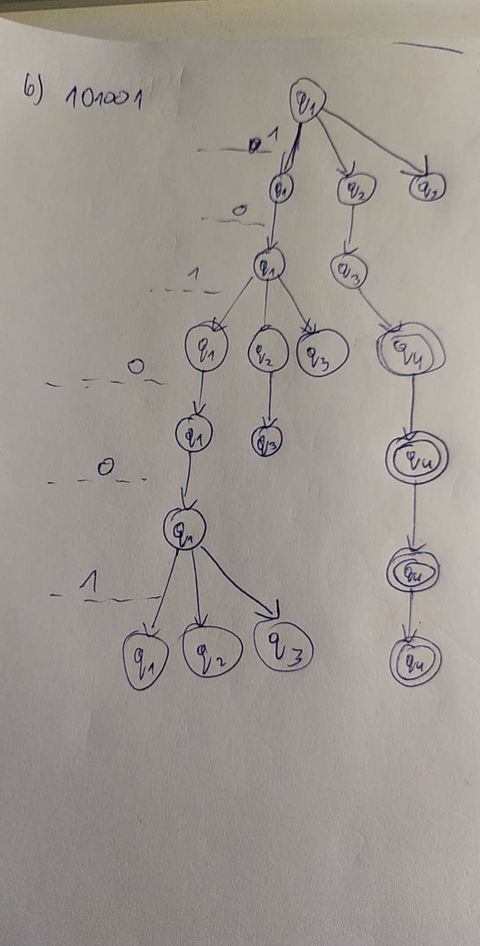 b) 101001
q1
1
q1 q2 q3
0
q1 q3
1
q1 q2 q3 q4
0
q1 q3 q4
0
q1 q4
1
q1 q2 q3 q4